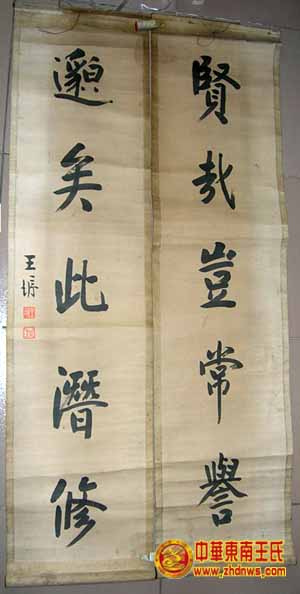 賢哉豈常譽
邈矣此潛修
王垿
中華東南王氏
www.zhdnws.com